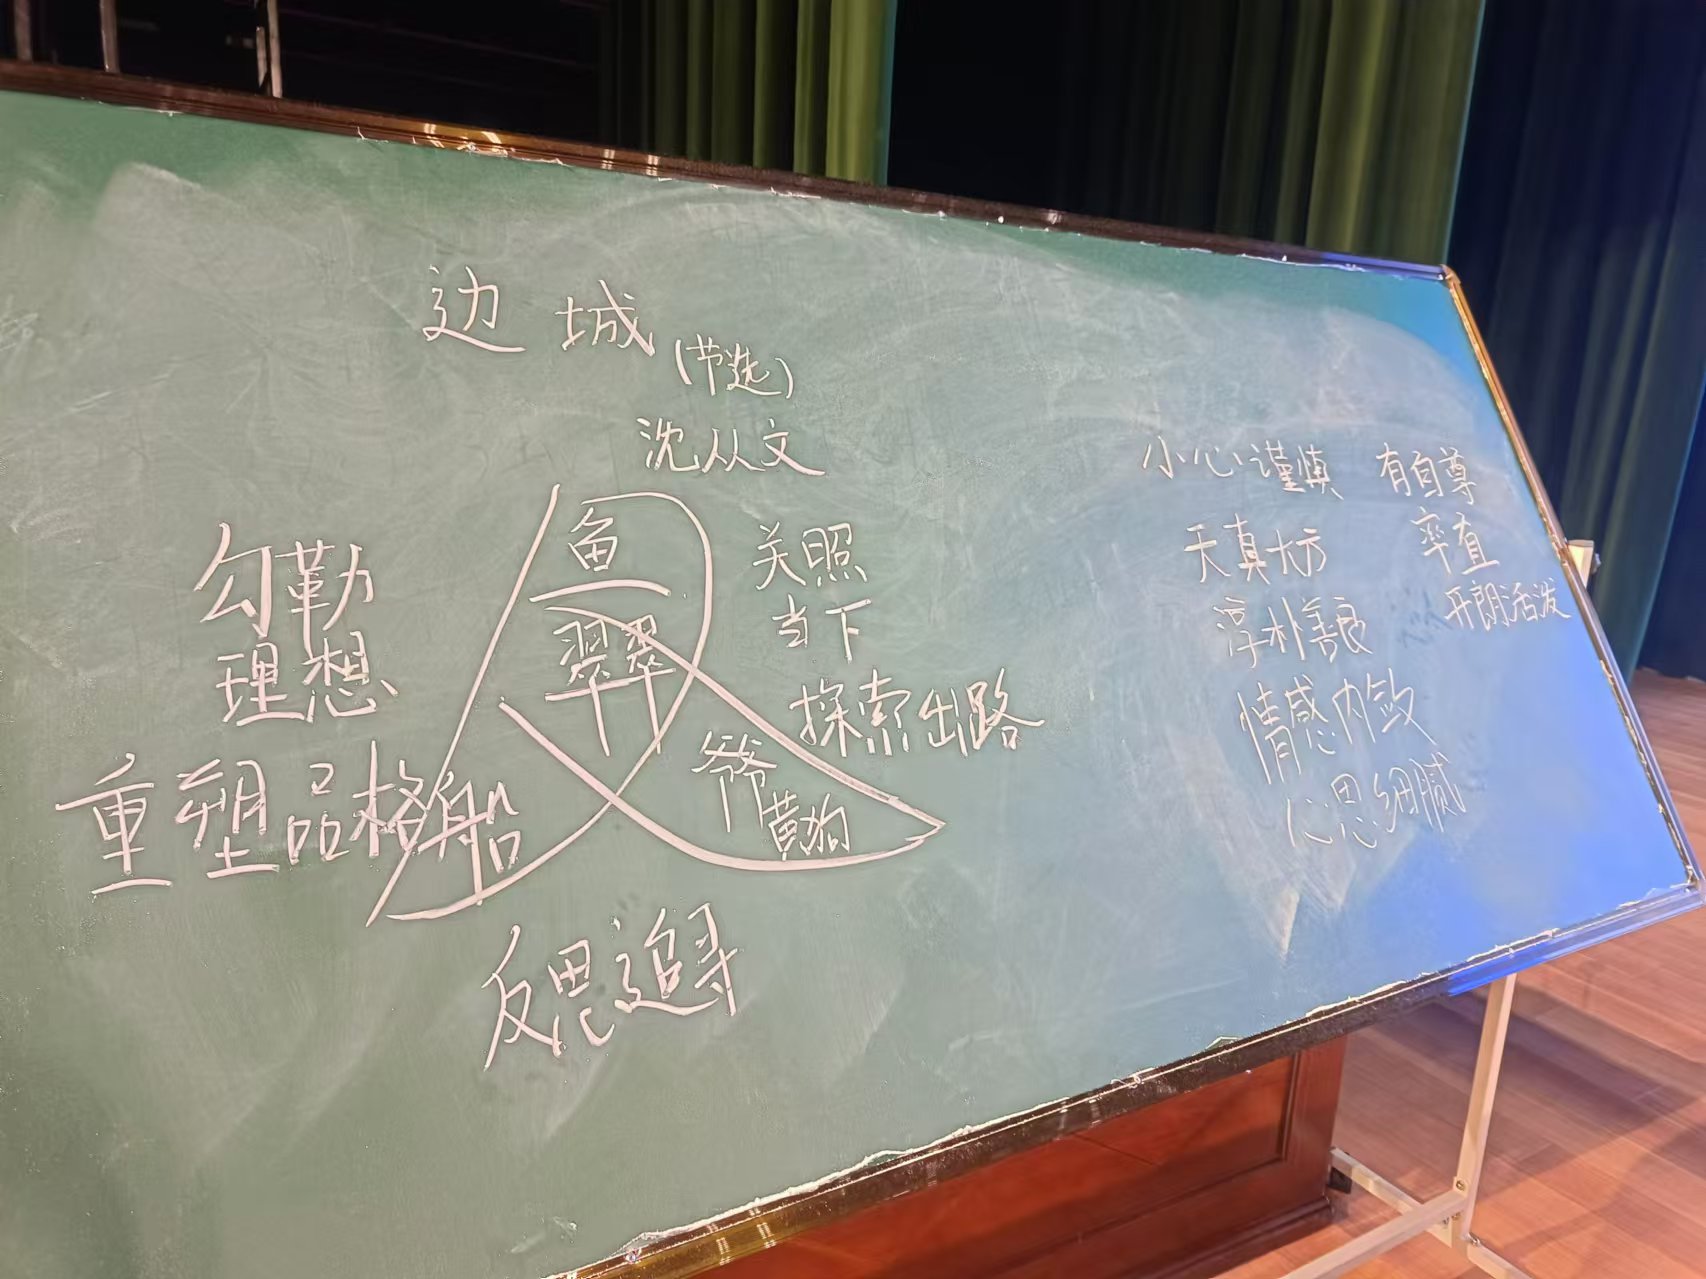 边城
(节选)
沈从文
鱼
翠翠
爷爷
黄狗
船
勾勒
理想
重塑品格
关照
当下
探索出路
反思追寻
小心谨慎 有自尊
天真大方 率直
淳朴善良 开朗活泼
情感内敛
心思细腻